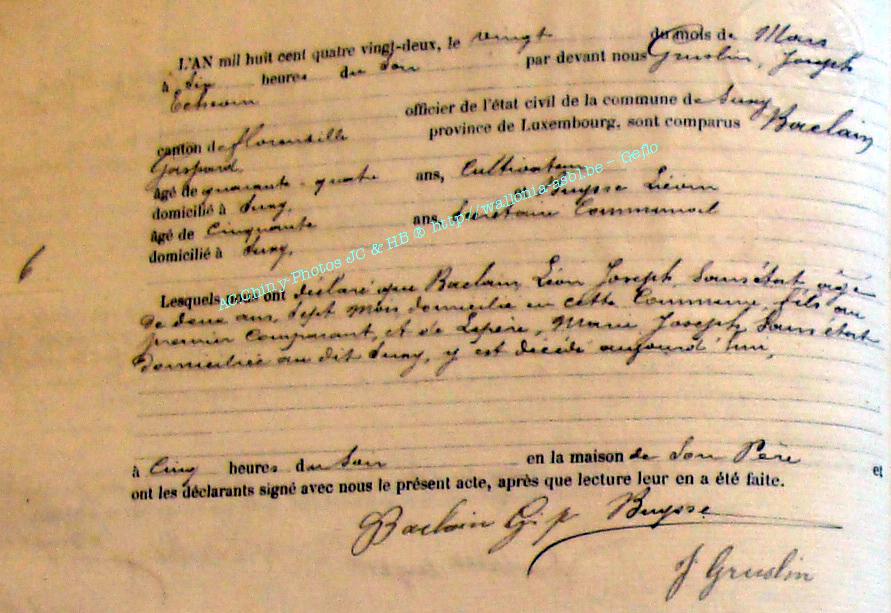 L'AN mil huit cent quatre vingt-deux, le vingt du mois de Mars
à Six heures du Soir par devant nous Gruslin, Joseph
Echevin officier de l'état civil de la commune de Suxy
canton de florenville province de Luxembourg, sont comparus Baclain
Gaspard
âgé de quarante-quatre ans, Cultivateur
domicilié à Suxy, Buysse Liévin
âgé de Cinquante ans, Secrétaire Communal
domicilié à Suxy,
6
AC Chiny-Photos JC & HB ® http://wallonia-asbl.be - Geflo
Lesquels nous ont déclaré que Baclain, Léon Joseph, Sans état, âgé
de deux ans, Sept mois, domicilié en cette Commune, fils du
premier Comparant, et de Lepère, Marie Joseph, Sans état
domiciliée au dit Suxy, y est décédé aujourd'hui,
à Cinq heures du Soir en la maison de Son Père et
ont les déclarants signé avec nous le présent acte, après que lecture leur en a été faite.
Baclain Gsp Buysse
J Gruslin